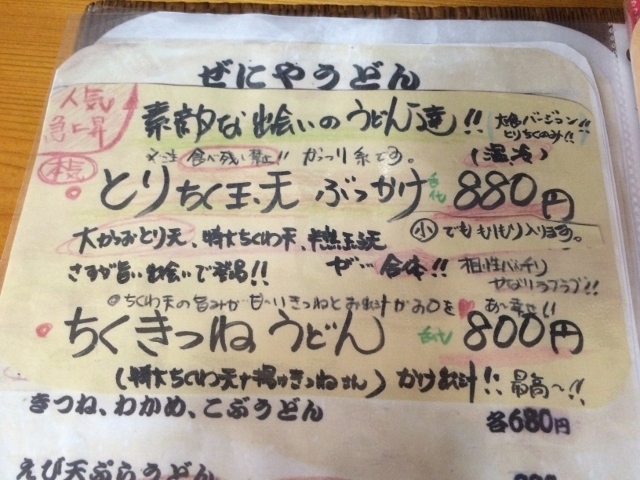 ぜにやうどん
人気
急上昇
素敵な出会いのうどん達!!
大食バージョン!!
とりちくのみ!!
※注 食べ残し禁止!! がっつり系です。
(温冷)
とりちく玉天 ぶっかけ 880円
大かおとり天、特大ちくわ天、半熟玉天
小 でも ももり入ります。
さるが旨い出会いで登場!! ぜ〜合体!!
相性バッチリ
かなりラブラブ!!
ちくわ天の旨みが 甘〜いきつねとお出汁がお口を あ〜幸せ!!
ちくきつねうどん 800円
(特大ちくわ天+揚げきつねさん) かけお出汁!! 最高〜!!
きつね、わかめ、こぶうどん 各680円
えび天ぷらうどん